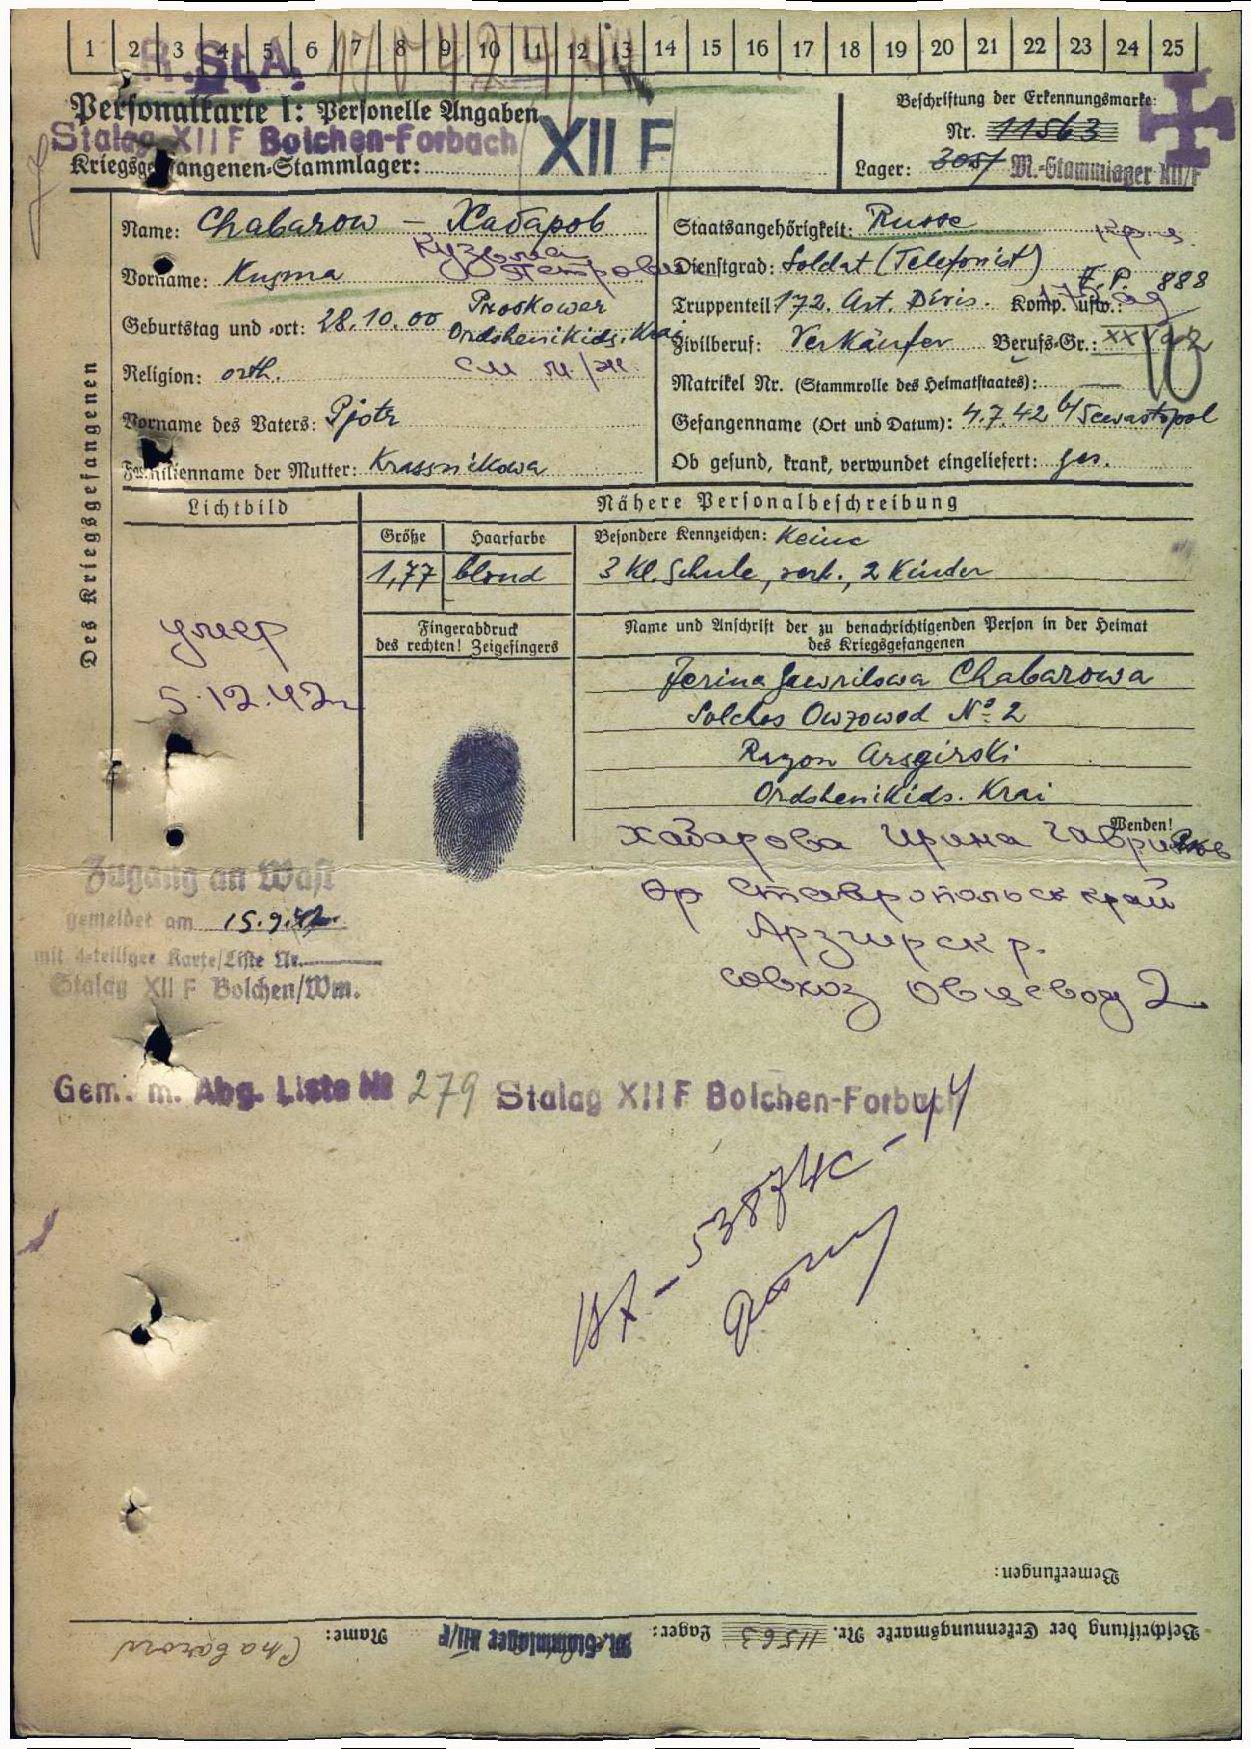 1 2 3 4 5 6 7 8 9 10 11 12 13 14 15 16 17 18 19 20 21 22 23 24 25
R.St.A.
Personalkarte I: Personelle Angaben
Stalag XII F Bolchen-Forbach
XII F
Kriegsgefangenen-Stammlager:
Beschriftung der Erkennungsmarke:
Nr. 11563
Lager: M.-Stammlager XII/F
Des Kriegsgefangenen
Name: Chabarow – Хабаров
Vorname: Kusma Кузьма Петрович
Geburtstag und -ort: 28.10.00 Proskower
Ordshenikids. Krai
Religion: orth.
Vorname des Vaters: Pjotr
Familienname der Mutter: Krassnikowa
Staatsangehörigkeit: Russe
Dienstgrad: Soldat (Telefonist)
Truppenteil: 172. Art. Divis. Komp. usw.: F.P. 888
Zivilberuf: Verkäufer Berufs-Gr.:
Matrikel Nr. (Stammrolle des Heimatstaates): —
Gefangenname (Ort und Datum): 4.7.42 b/Sewastopol
Ob gesund, krank, verwundet eingeliefert: ges.
Lichtbild
Nähere Personalbeschreibung
Größe Haarfarbe Besondere Kennzeichen: Keine
1,77 blond 3 Kl. Schule, verh., 2 Kinder
Fingerabdruck
des rechten! Zeigefingers
Name und Anschrift der zu benachrichtigenden Person in der Heimat
des Kriegsgefangenen
умер
5.12.42г
Jerina Gawrilowa Chabarowa
Solchos Owzowod No 2
Rayon Arsgirski
Ordshenikids. Krai
Wenden!
Хабарова Ирина
Ор Ставропольск край
Арзгирск р.
совхоз Овцевод 2
Zugang an Wast
gemeldet am 15.9.42
mit 4-teiliger Karte/Liste Nr.
Stalag XII F Bolchen/Wm.
Gem. m. Abg. Liste № 279 Stalag XII F Bolchen-Forbach
Bemerkungen:
Beschriftung der Erkennungsmarke Nr. 11563 Lager: M.-Stammlager XII/F Name: Chabarow